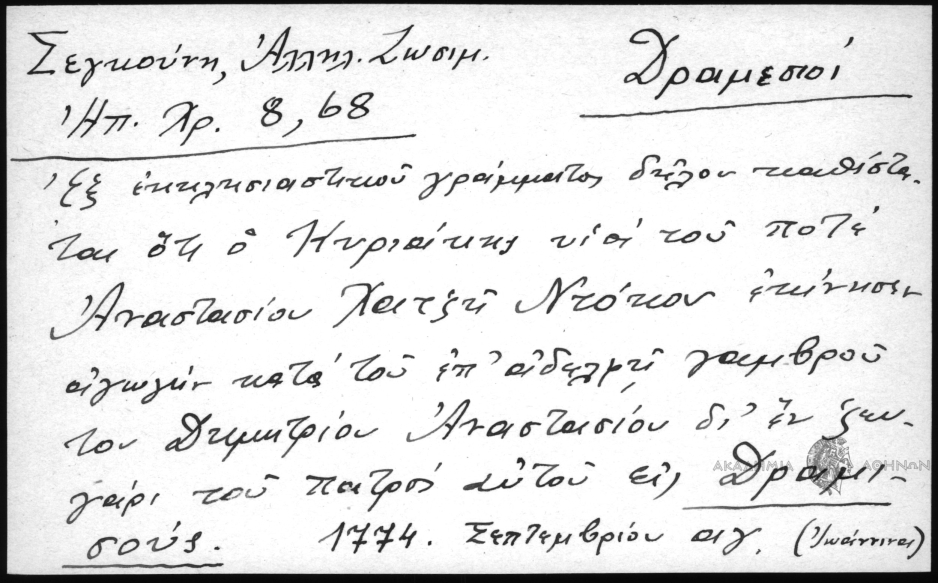 Σεγκούνη, Ἀλληλ. Ζωσιμ.
Δραμεσοί
Ἠπ. Χρ. 8, 68
Ἐξ ἐκκλησιαστικοῦ γράμματος δῆλον καθίστα-
ται ὅτι ὁ Κυριάκης υἱὸς τοῦ ποτὲ
Ἀναστασίου Χατζῆ Ντόκου ἐκίνησεν
ἀγωγὴν κατὰ τοῦ ἐπ' ἀδελφῇ γαμβροῦ
του Δημητρίου Ἀναστασίου δι' ἓν ζευ-
γάρι τοῦ πατρός αὐτοῦ εἰς Δραμι-
σούς. 1774. Σεπτεμβρίου αῃ. (Ἰωάννινα)
ΑΚΑΔΗΜΙΑ ΑΘΗΝΩΝ